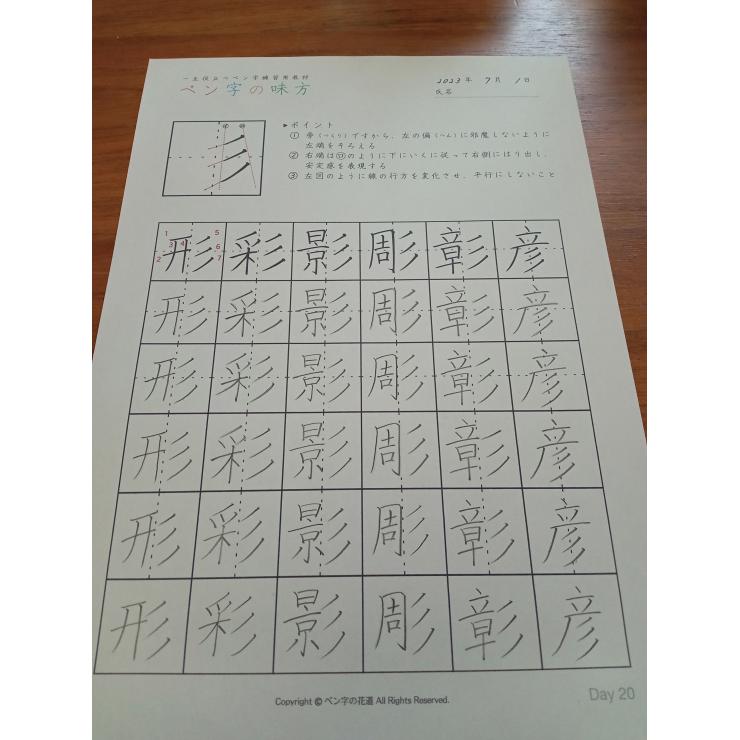 一生役立つペン字練習用教材
ペン字の味方
2023年 7月 1日
氏名
㋑ ㋺
▶ポイント
① 旁(つくり)ですから、左の偏(へん)に邪魔しないように
左端をそろえる
② 右端は㋺のように下にいくに従って右側にはり出し、
安定感を表現する
③ 左図のように線の行方を変化させ、平行にしないこと
1 2 3 4 5 6 7
形 彩 影 彫 彰 彦
形 彩 影 彫 彰 彦
形 彩 影 彫 彰 彦
形 彩 影 彫 彰 彦
形 彩 影 彫 彰 彦
形 彩 影 彫 彰 彦
Copyright © ペン字の花道 All Rights Reserved.
Day 20